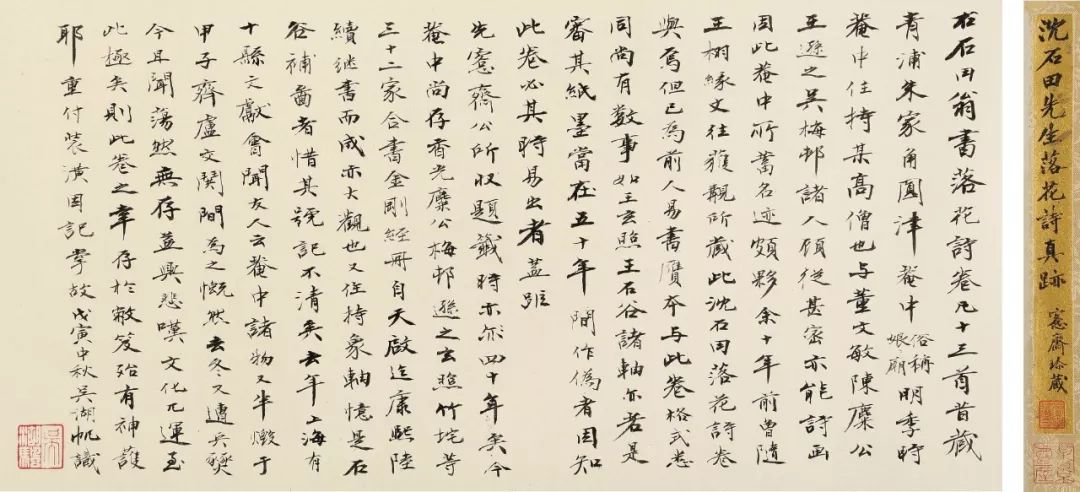 沈石田先生落花詩真跡
愙齋珍藏
右石田翁書落花詩卷凡十三首昔藏
青浦朱家角圓津菴中俗稱娘娘廟明季時
菴中住持某高僧也与董文敏陳麋公
王遜之吳梅邨諸人從甚密亦能詩画
因此菴中所蓄名迹頗夥余十年前曾隨
王樹緣丈往獲觀所藏此沈石田落花詩卷
與焉但已為前人易書贋本与此卷格式悉
同尚有數事如王玄照王石谷諸軸亦若是
審其紙墨當在五十年間作偽者因知
此卷必其時易出者蓋距
先愙齋公所収題籤時亦尔四十年矣今
菴中尚存香光麋公梅邨遜之玄照竹垞等
三十二家合書金剛經冊自天啟迄康熙陸
續继書而成亦大觀也又住持象軸憶是石
谷補啚者惜其號記不清矣去年上海有
十縣文獻會聞友人云菴中諸物又半燬于
甲子齊盧交鬨間為之慨然去冬又遭兵燹
今且聞蕩然無存益興悲嘆文化厄運至
此極矣則此卷之幸存於敝笈殆有神護
耶重付裝潢因記掌故戊寅中秋吳湖帆識